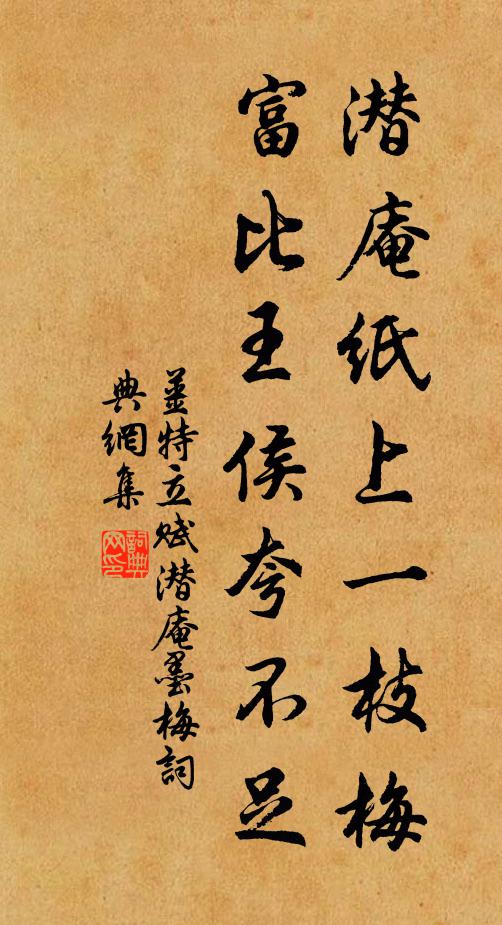 潜庵纸上一枝梅
富比王侯夸不足
姜特立赋潜庵墨梅詞
典網集
詞典网印